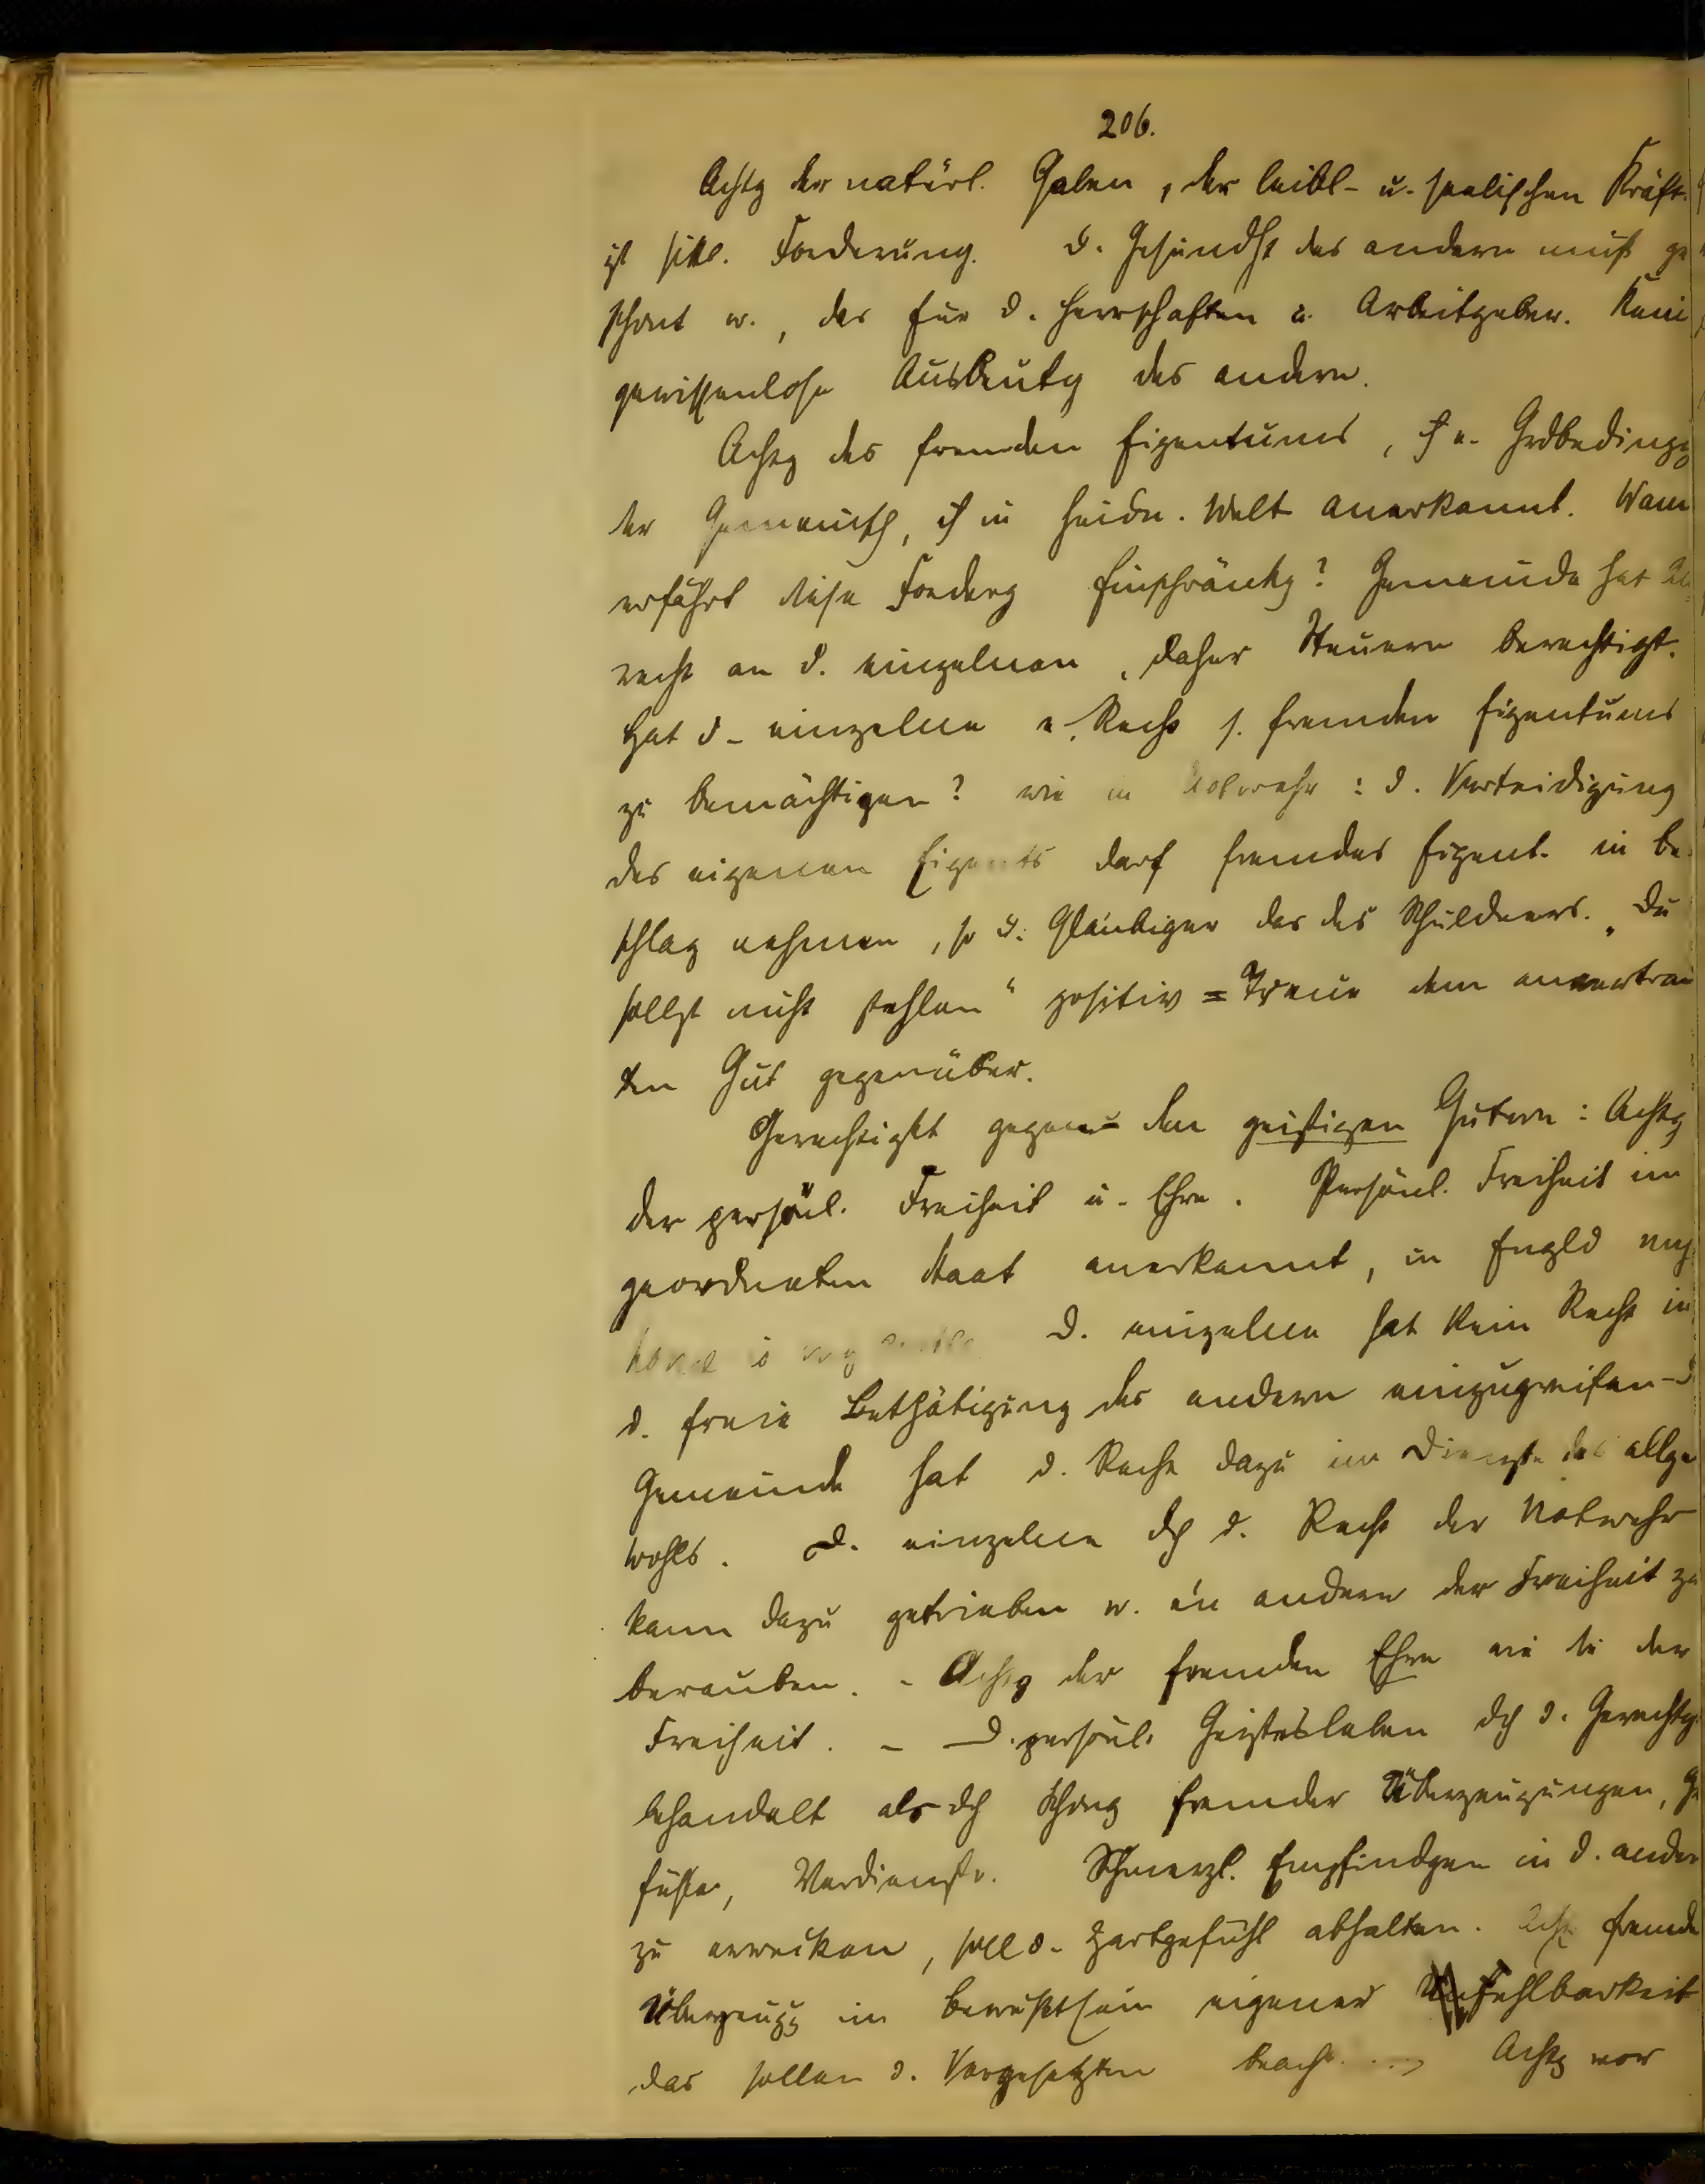 206.
Achtg der natürl. Gaben, der leibl- u. seelischen Kräft
ist sittl. Forderung. D. Gesundht des andern muß ge
schont w., das für d. Herrschaften u. Arbeitgeber. Kein
gewissenlose Ausbeutg des andern.
Achtg des fremden Eigentums, ist e. Grdbedingg
der Gemeinsch, ist in heidn. Welt anerkannt. Wann
erfährt diese Forderg Einschränkg? Gemeinde hat
recht an d. einzelnen, daher Steuern berechtigt.
Hat d. einzelne e. Recht s. fremden Eigentums
zu bemächtigen? wie in Notwehr: d. Verteidigung
des eigenen Eigents darf fremdes Eigent. in be
schlag nehmen, so d. Gläubiger das des Schuldners. „Du
sollst nicht stehlen“ positiv = Treue dem anvertrau
ten Gut gegenüber.
Gerechtigkt gegen den geistigen Gütern: Achtg
der persönl. Freiheit u. Ehre. Persönl. Freiheit im
geordneten Staat anerkannt, in Engld my
house is my castle. D. einzelne hat kein Recht in
d. freie Bethätigung des andern einzugreifen - D
Gemeinde hat d. Recht dazu im Dienste des allge
wohls. D. einzelne dch d. Recht der Notwehr
kann dazu getrieben w. ein andern der Freiheit zu
berauben. - Achtg der fremden Ehre wie die der
Freiheit. - D. persönl. Geistesleben dch d. Gerechtg
behandelt als dch Schong fremder Überzeugungen, Ge
fühle, Verdienste. Schmerzl. Empfindgen in d. andern
zu erwecken, soll d. Zartgefühl abhalten. Acht fremde
Überzeugg im Bewußtsein eigener Fehlbarkeit
das sollen d. Vorgesetzten Achtg vor